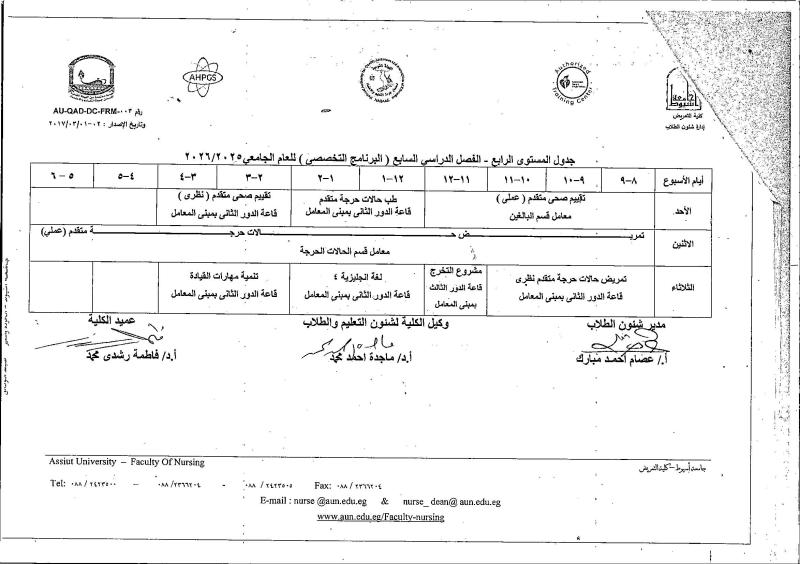 AHPGS
Authorized
Training Center
رقم AU-QAD-DC-FRM-٠٠٣
وتاريخ الإصدار : ٠٢-٢٠١٧/٠٣/٠١
كلية التمريض
إدارة شئون الطلاب
جدول المستوى الرابع - الفصل الدراسي السابع ( البرنامج التخصصى ) للعام الجامعي ٢٠٢٦/٢٠٢٥
أيام الأسبوع
٨-٩
٩-١٠
١٠-١١
١١-١٢
١٢-١
١-٢
٢-٣
٣-٤
٤-٥
٥-٦
الأحد
تقييم صحى متقدم ( عملى )
معامل قسم البالغين
طب حالات حرجة متقدم
قاعة الدور الثانى بمبنى المعامل
تقييم صحى متقدم ( نظرى )
قاعة الدور الثانى بمبنى المعامل
الاثنين
تمريـــض حـــالات حرجـــة متقدم (عملي)
معامل قسم الحالات الحرجة
الثلاثاء
تمريض حالات حرجة متقدم نظرى
قاعة الدور الثانى بمبنى المعامل
مشروع التخرج
قاعة الدور الثالث
بمبنى المعامل
لغة انجليزية ٤
قاعة الدور الثانى بمبنى المعامل
تنمية مهارات القيادة
قاعة الدور الثانى بمبنى المعامل
مدير شئون الطلاب
أ./ عصام احمد مبارك
وكيل الكلية لشئون التعليم والطلاب
أ.د/ ماجدة احمد محمد
عميد الكلية
أ.د/ فاطمة رشدى محمد
Assiut University – Faculty Of Nursing
جامعة أسيوط – كلية التمريض
Tel: ٠٨٨ / ٢٤٢٣٥٠٠ - ٠٨٨ /٢٣٦٦٢٠٤ - ٠٨٨ / ٢٤٢٣٥٠٥ Fax: ٠٨٨ / ٢٣٦٦٢٠٤
E-mail : nurse @aun.edu.eg & nurse_dean@ aun.edu.eg
www.aun.edu.eg/Faculty-nursing